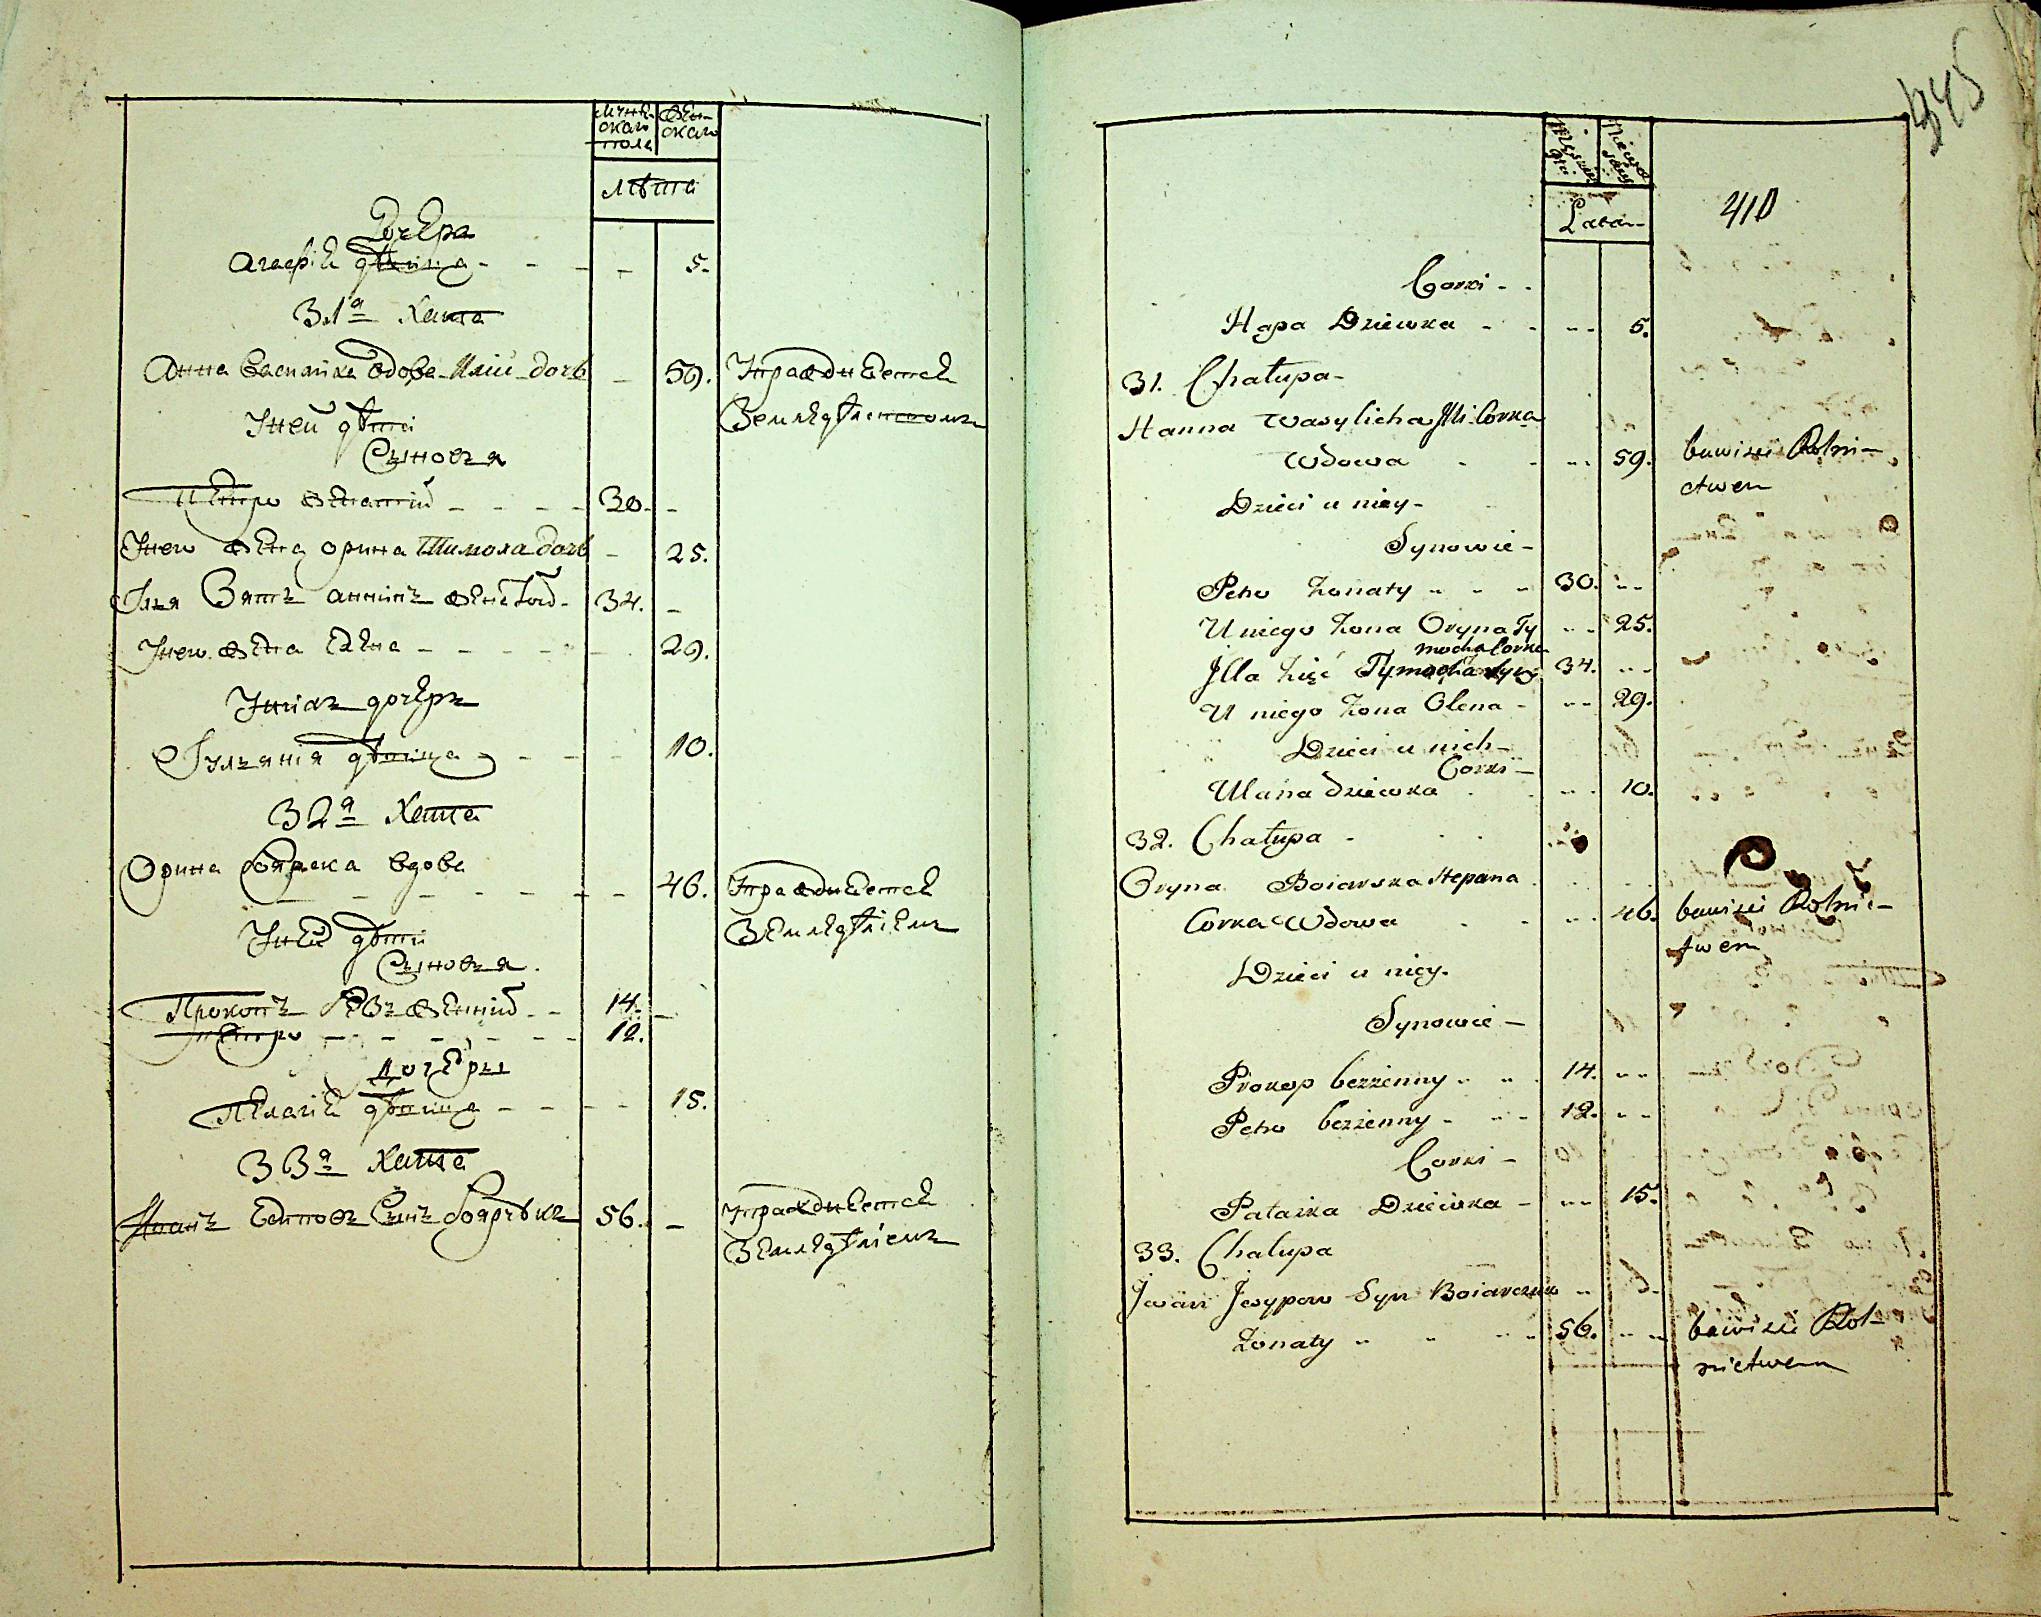 муже-
ского
пола
жен-
ского
лѣта
Дочера
Агафія дѣвица - - - - 5.
31я Хата
Анна Василиха вдова Иліи дочь - 59. Упражняется
Земледѣлством
У неи дѣти
Сыновя
Петро женатый - - - - 30. -
У него жена Орина Тимоха дочь - 25.
Илья Зять аннинъ женатый - 34. -
У него жена Елена - - - - 29.
У них дочерь
Іулянія дѣвица - - - 10.
32я Хата
Орина боярска вдова
- - - - - - 46. Упражняется
Земледѣліем
У неи дѣти
Сыновя.
Прокопъ безженный - - 14. -
Петро - - - - - - 12.
Дочеры
Пелагія дѣвица - - - - 15.
33я Хата
Иванъ Есиповъ Сынъ боярчукъ 56. - Упражняется
Земледѣліемъ
345
410
Lata
Corki - -
Hapa Dziewka - - - - 5.
31. Chałupa -
Hanna Wasylicha Jlli Corka
Wdowa - - - 59. bawi sie Rolni-
ctwem
Dzieci u niey -
Synowie -
Petro Żonaty - - - 30. - -
U niego Żona Oryna Ty - - 25.
mocha Corka
Jlla Zięć 34. - -
U niego Żona Olena - - - 29.
Dzieci u nich -
Corki -
Ulana dziewka - - - 10.
32. Chałupa -
Oryna Boiarska Stepana
Corka Wdowa - - - 46. bawi sie Rolnic-
twem
Dzieci u niey.
Synowie -
Prokop bezzenny - - - 14. - -
Petro bezzenny - - - 12. - -
Corki -
Pałaska Dziewka - - - 15.
33. Chałupa
Jwan Jesypow Syn Boiarczuk
Żonaty - - - - 56. - - bawi sie Rol-
nictwem